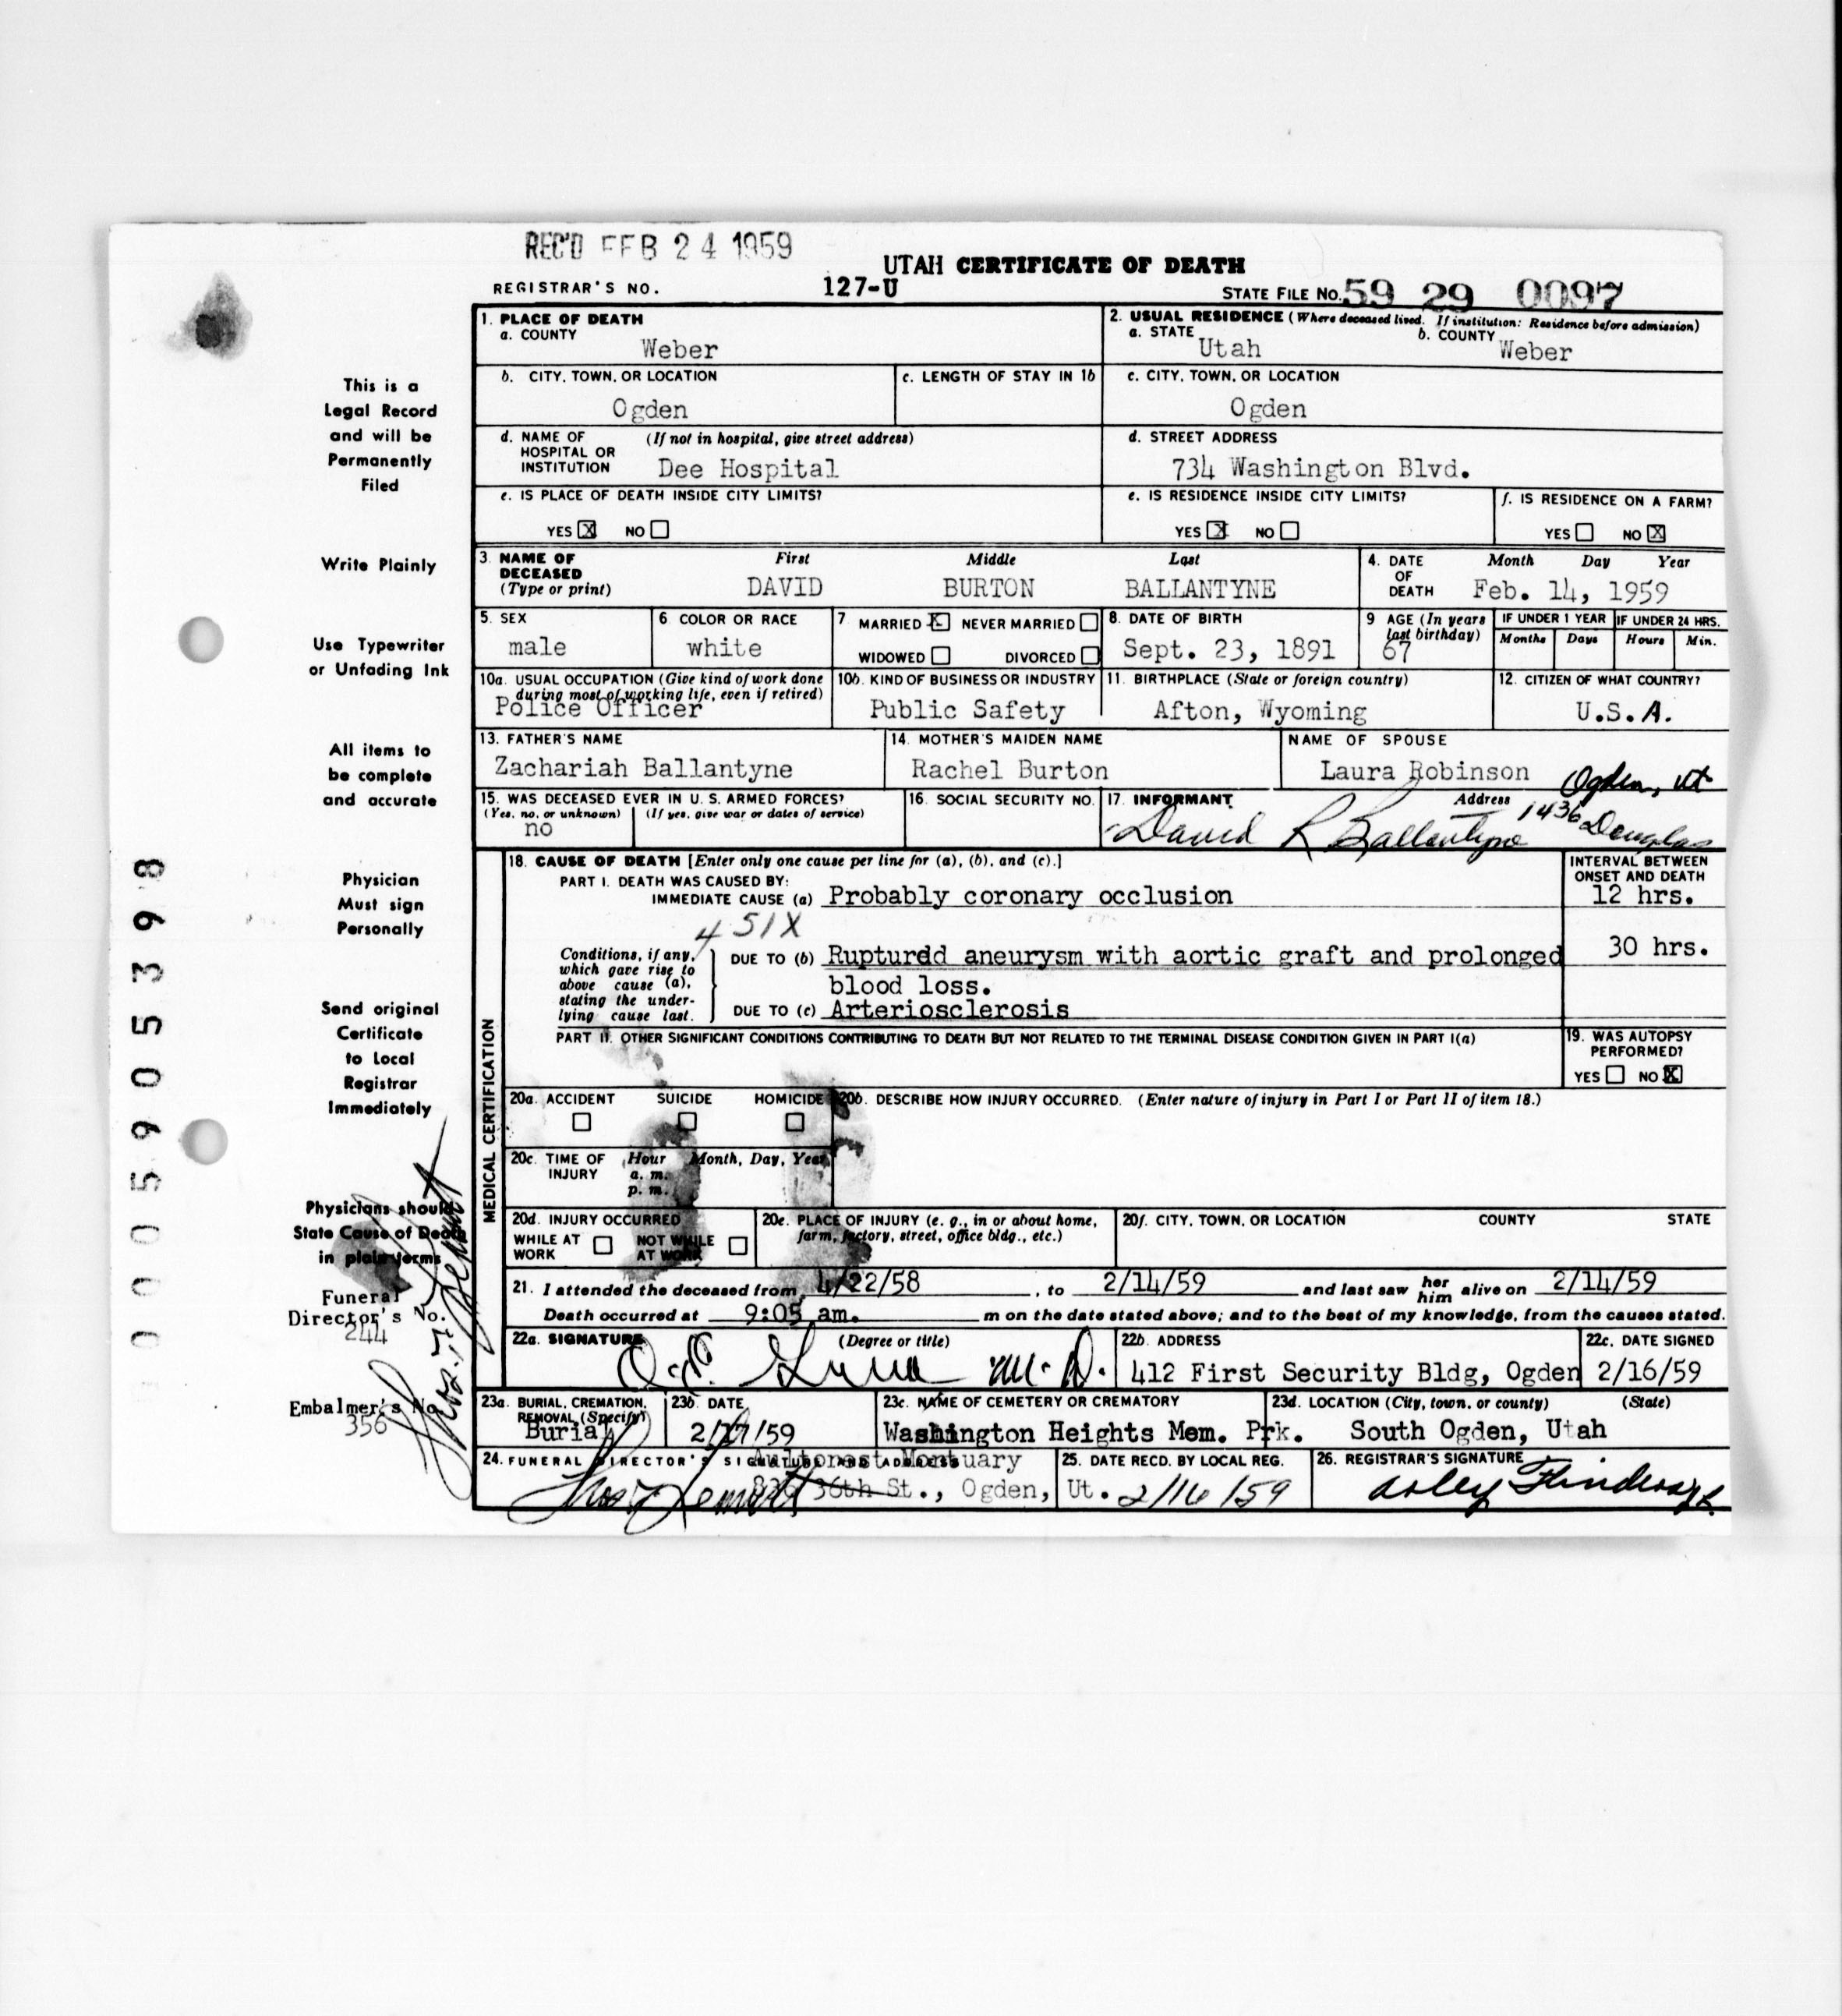 REC'D FEB 24 1959
UTAH CERTIFICATE OF DEATH
REGISTRAR'S NO. 127-U STATE FILE NO. 59 29 0097
1. PLACE OF DEATH
a. COUNTY
Weber
2. USUAL RESIDENCE (Where deceased lived. If institution: Residence before admission)
a. STATE b. COUNTY
Utah Weber
b. CITY, TOWN, OR LOCATION
Ogden
c. LENGTH OF STAY IN 1b
c. CITY, TOWN, OR LOCATION
Ogden
d. NAME OF (If not in hospital, give street address)
HOSPITAL OR
INSTITUTION Dee Hospital
d. STREET ADDRESS
734 Washington Blvd.
e. IS PLACE OF DEATH INSIDE CITY LIMITS?
YES X NO
e. IS RESIDENCE INSIDE CITY LIMITS?
YES X NO
f. IS RESIDENCE ON A FARM?
YES NO X
3. NAME OF First Middle Last
DECEASED
(Type or print) DAVID BURTON BALLANTYNE
4. DATE Month Day Year
OF
DEATH Feb. 14, 1959
5. SEX
male
6 COLOR OR RACE
white
7 MARRIED X NEVER MARRIED
WIDOWED DIVORCED
8. DATE OF BIRTH
Sept. 23, 1891
9 AGE (In years
last birthday)
67
IF UNDER 1 YEAR IF UNDER 24 HRS.
Months Days Hours Min.
10a. USUAL OCCUPATION (Give kind of work done
during most of working life, even if retired)
Police Officer
10b. KIND OF BUSINESS OR INDUSTRY
Public Safety
11. BIRTHPLACE (State or foreign country)
Afton, Wyoming
12. CITIZEN OF WHAT COUNTRY?
U.S.A.
13. FATHER'S NAME
Zachariah Ballantyne
14. MOTHER'S MAIDEN NAME
Rachel Burton
NAME OF SPOUSE
Laura Robinson
15. WAS DECEASED EVER IN U. S. ARMED FORCES?
(Yes, no, or unknown) (If yes, give war or dates of service)
no
16. SOCIAL SECURITY NO.
17. INFORMANT Address
Ogden, Ut
David R Ballantyne 1436 Douglas
MEDICAL CERTIFICATION
18. CAUSE OF DEATH [Enter only one cause per line for (a), (b), and (c).]
INTERVAL BETWEEN
ONSET AND DEATH
PART I. DEATH WAS CAUSED BY:
IMMEDIATE CAUSE (a) Probably coronary occlusion 12 hrs.
451X
Conditions, if any,
which gave rise to
above cause (a),
stating the under-
lying cause last.
DUE TO (b) Rupturdd aneurysm with aortic graft and prolonged 30 hrs.
blood loss.
DUE TO (c) Arteriosclerosis
PART II. OTHER SIGNIFICANT CONDITIONS CONTRIBUTING TO DEATH BUT NOT RELATED TO THE TERMINAL DISEASE CONDITION GIVEN IN PART I(a)
19. WAS AUTOPSY
PERFORMED?
YES NO X
20a. ACCIDENT SUICIDE HOMICIDE
20b. DESCRIBE HOW INJURY OCCURRED. (Enter nature of injury in Part I or Part II of item 18.)
20c. TIME OF Hour Month, Day, Year
INJURY a. m.
p. m.
20d. INJURY OCCURRED
WHILE AT NOT WHILE
WORK AT WORK
20e. PLACE OF INJURY (e. g., in or about home,
farm, factory, street, office bldg., etc.)
20f. CITY, TOWN, OR LOCATION COUNTY STATE
21. I attended the deceased from 4/22/58, to 2/14/59 and last saw her him alive on 2/14/59
Death occurred at 9:05 am. m on the date stated above; and to the best of my knowledge, from the causes stated.
22a. SIGNATURE (Degree or title)
M.D.
22b. ADDRESS
412 First Security Bldg, Ogden
22c. DATE SIGNED
2/16/59
23a. BURIAL, CREMATION,
REMOVAL (Specify)
Burial
23b. DATE
2/17/59
23c. NAME OF CEMETERY OR CREMATORY
Washington Heights Mem. Prk.
23d. LOCATION (City, town, or county) (State)
South Ogden, Utah
24. FUNERAL DIRECTOR'S SIGNATURE AND ADDRESS
Aultorest Mortuary
36th St., Ogden, Ut.
25. DATE RECD. BY LOCAL REG.
2/16/59
26. REGISTRAR'S SIGNATURE
This is a
Legal Record
and will be
Permanently
Filed
Write Plainly
Use Typewriter
or Unfading Ink
All items to
be complete
and accurate
Physician
Must sign
Personally
Send original
Certificate
to Local
Registrar
Immediately
Physicians should
State Cause of Death
in plain terms
Funeral
Director's No.
244
Embalmer's No.
356
0005905398